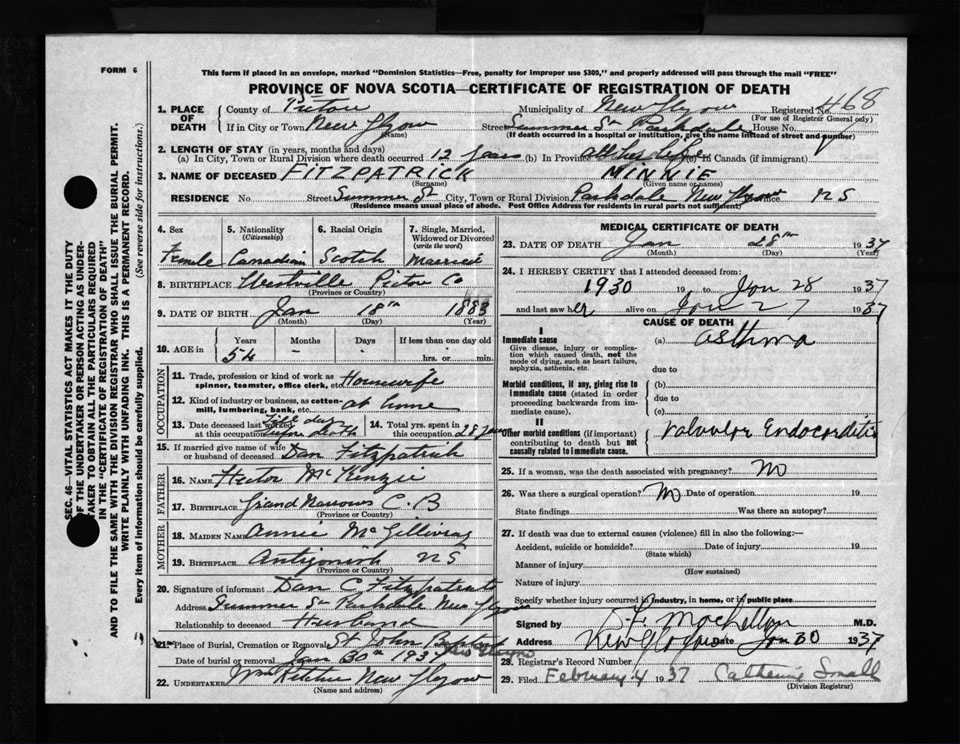 FORM 6
This form if placed in an envelope, marked "Dominion Statistics—Free, penalty for improper use $300," and properly addressed will pass through the mail "FREE"
PROVINCE OF NOVA SCOTIA—CERTIFICATE OF REGISTRATION OF DEATH
1. PLACE OF DEATH County of Pictou Municipality of New Glasgow Registered No. 468
(For use of Registrar General only)
If in City or Town New Glasgow (Name) Street Summer St Parkdale House No.
(If death occurred in a hospital or institution, give the name instead of street and number)
2. LENGTH OF STAY (in years, months and days)
(a) In City, Town or Rural Division where death occurred 12 years (b) In Province all her life (c) In Canada (if immigrant)
3. NAME OF DECEASED FITZPATRICK MINNIE
(Surname) (Given name or names)
RESIDENCE No. Street Summer St City, Town or Rural Division Parkdale New Glasgow NS
(Residence means usual place of abode. Post Office Address for residents in rural parts not sufficient)
4. Sex 5. Nationality (Citizenship) 6. Racial Origin 7. Single, Married, Widowed or Divorced (write the word)
Female Canadian Scotch Married
8. BIRTHPLACE Westville Pictou Co
(Province or Country)
9. DATE OF BIRTH Jan 18th 1883
(Month) (Day) (Year)
10. AGE in Years Months Days If less than one day old
54 - - hrs. or min.
OCCUPATION
11. Trade, profession or kind of work as spinner, teamster, office clerk, etc. Housewife
12. Kind of industry or business, as cotton-mill, lumbering, bank, etc. at home
13. Date deceased last worked at this occupation till day before death 14. Total yrs. spent in this occupation 28 years
15. If married give name of wife or husband of deceased Dan Fitzpatrick
FATHER
16. NAME Hector McKenzie
17. BIRTHPLACE Grand Narrows C.B
(Province or Country)
MOTHER
18. MAIDEN NAME Annie McGillivray
19. BIRTHPLACE Antigonish NS
(Province or Country)
20. Signature of informant Dan C Fitzpatrick
Address Summer St Parkdale New Glasgow
Relationship to deceased Husband
21. Place of Burial, Cremation or Removal St John Baptist New Glasgow
Date of burial or removal Jan 30th 1937
22. UNDERTAKER Wm Ritchie New Glasgow
(Name and address)
MEDICAL CERTIFICATE OF DEATH
23. DATE OF DEATH Jan 28th 1937
(Month) (Day) (Year)
24. I HEREBY CERTIFY that I attended deceased from:
1930 19 to Jan 28 1937
and last saw her alive on Jan 27 1937
CAUSE OF DEATH
I
Immediate cause (a) asthma
Give disease, injury or complication which caused death, not the mode of dying, such as heart failure, asphyxia, asthenia, etc.
due to
Morbid conditions, if any, giving rise to immediate cause (stated in order proceeding backwards from immediate cause). (b)
due to
(c)
II
Other morbid conditions (if important) contributing to death but not causally related to immediate cause. Valvular Endocarditis
25. If a woman, was the death associated with pregnancy? No
26. Was there a surgical operation? No Date of operation 19
State findings Was there an autopsy?
27. If death was due to external causes (violence) fill in also the following:—
Accident, suicide or homicide? Date of injury 19
(State which)
Manner of injury
(How sustained)
Nature of injury
Specify whether injury occurred in industry, in home, or in public place
Signed by S.F. MacLellan M.D.
Address New Glasgow Date Jan 30 1937
28. Registrar's Record Number
29. Filed February 4 1937 Catherine Small
(Division Registrar)
SEC. 46—VITAL STATISTICS ACT MAKES IT THE DUTY
OF THE UNDERTAKER OR PERSON ACTING AS UNDER-
TAKER TO OBTAIN ALL THE PARTICULARS REQUIRED
IN THE "CERTIFICATE OF REGISTRATION OF DEATH"
AND TO FILE THE SAME WITH THE DIVISION REGISTRAR WHO SHALL ISSUE THE BURIAL PERMIT.
WRITE PLAINLY WITH UNFADING INK. THIS IS A PERMANENT RECORD.
Every item of information should be carefully supplied. (See reverse side for instructions.)